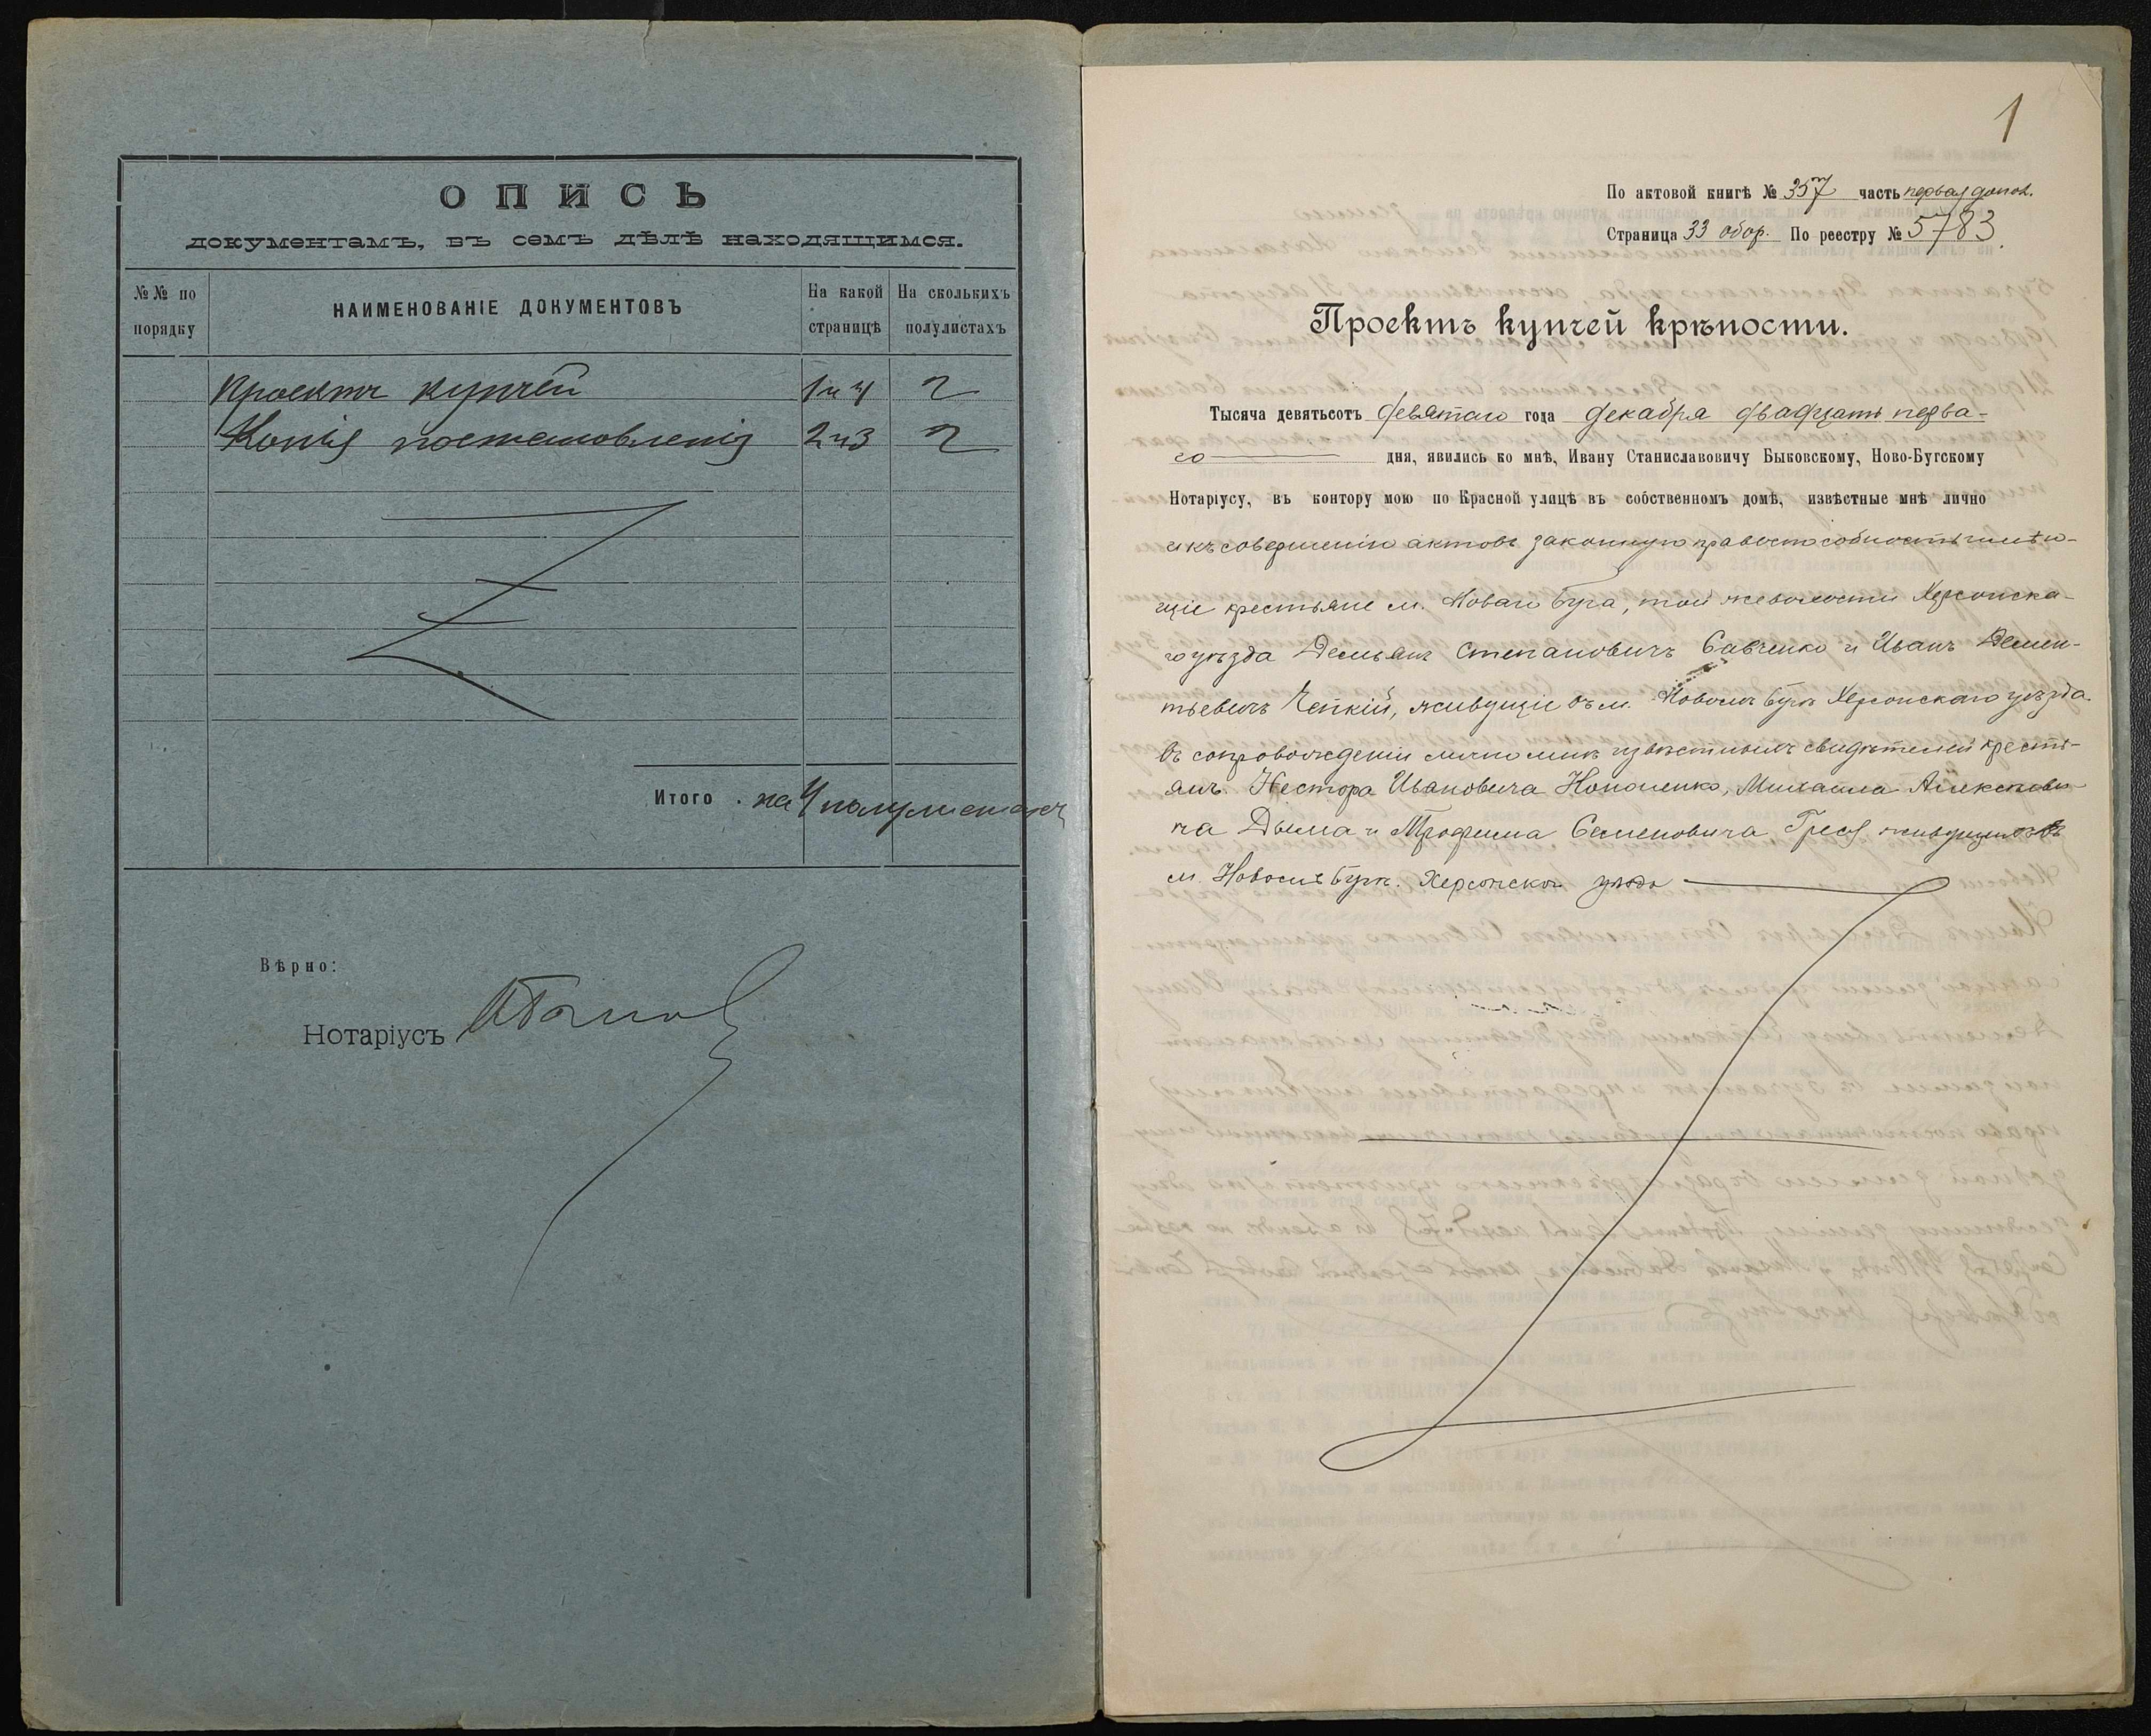 ОПИСЬ
документамъ, въ семъ дѣлѣ находящимся.
№№ по порядку
НАИМЕНОВАНІЕ ДОКУМЕНТОВЪ
На какой страницѣ
На сколькихъ полулистахъ
Проектъ купчей 1 и 4 2
Копія постановленія 2 и 3 2
Итого . на 4 полулистахъ
Вѣрно:
Нотаріусъ
1
По актовой книгѣ № 357 часть первая допол.
Страница 33 обор. По реестру № 5783.
Проектъ купчей крѣпости.
Тысяча девятьсотъ девятаго года декабря двадцать перва-
го дня, явились ко мнѣ, Ивану Станиславовичу Быковскому, Ново-Бугскому
Нотаріусу, въ контору мою по Красной улицѣ въ собственномъ домѣ, извѣстные мнѣ лично
и къ совершенію актовъ законную правоспособность имѣю-
щіе крестьяне м. Новаго Буга, той же волости Херсонска-
го уѣзда Демьянъ Степановичъ Савченко и Иванъ Демен-
тьевичъ Чепкій, живущіе въ м. Новомъ Бугѣ Херсонскаго уѣзда
въ сопровожденіи лично мнѣ извѣстныхъ свидѣтелей кресть-
янъ Нестора Ивановича Кононенко, Михаила Алексѣеви-
ча Дыма и Трофима Семеновича Греся живущихъ въ
м. Новомъ Бугѣ. Херсонскаго уѣзда